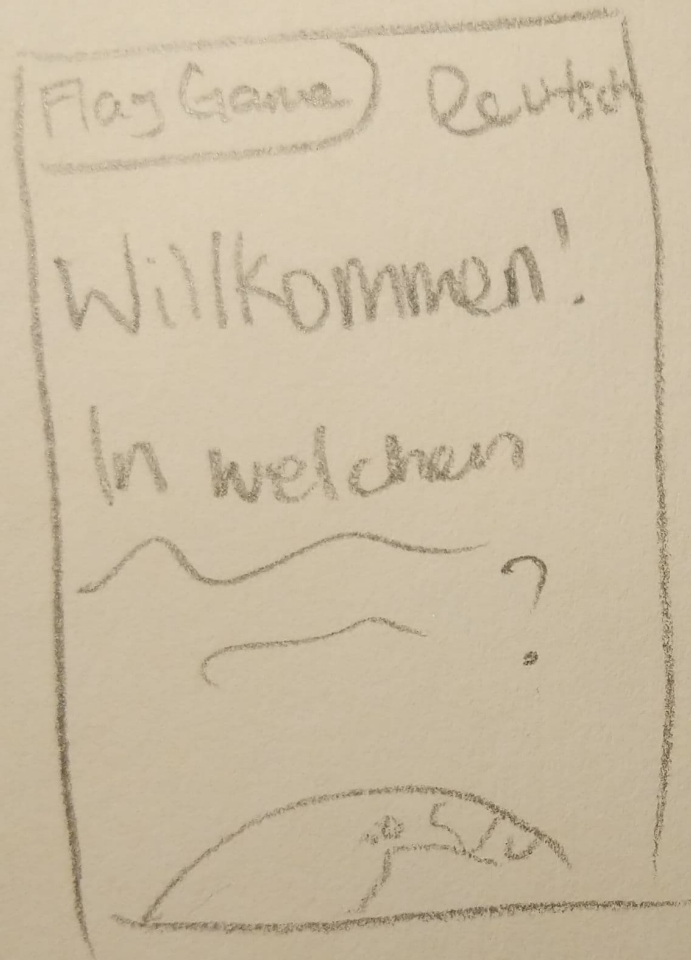 Flag Game Deutsch
Willkommen!
In welchen
?